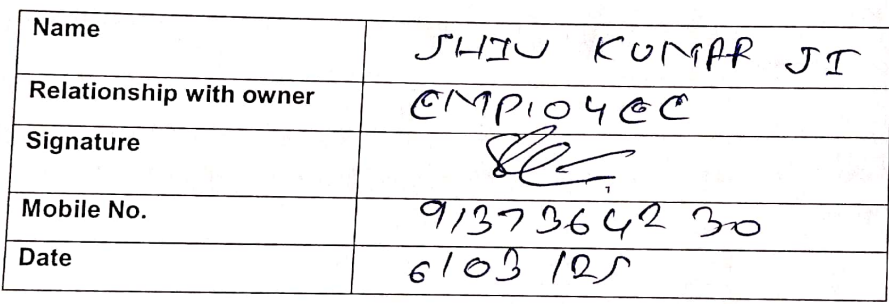 Name SHIV KUMAR JI
Relationship with owner EMPlOYEE
Signature
Mobile No. 9137364230
Date 6/03/25